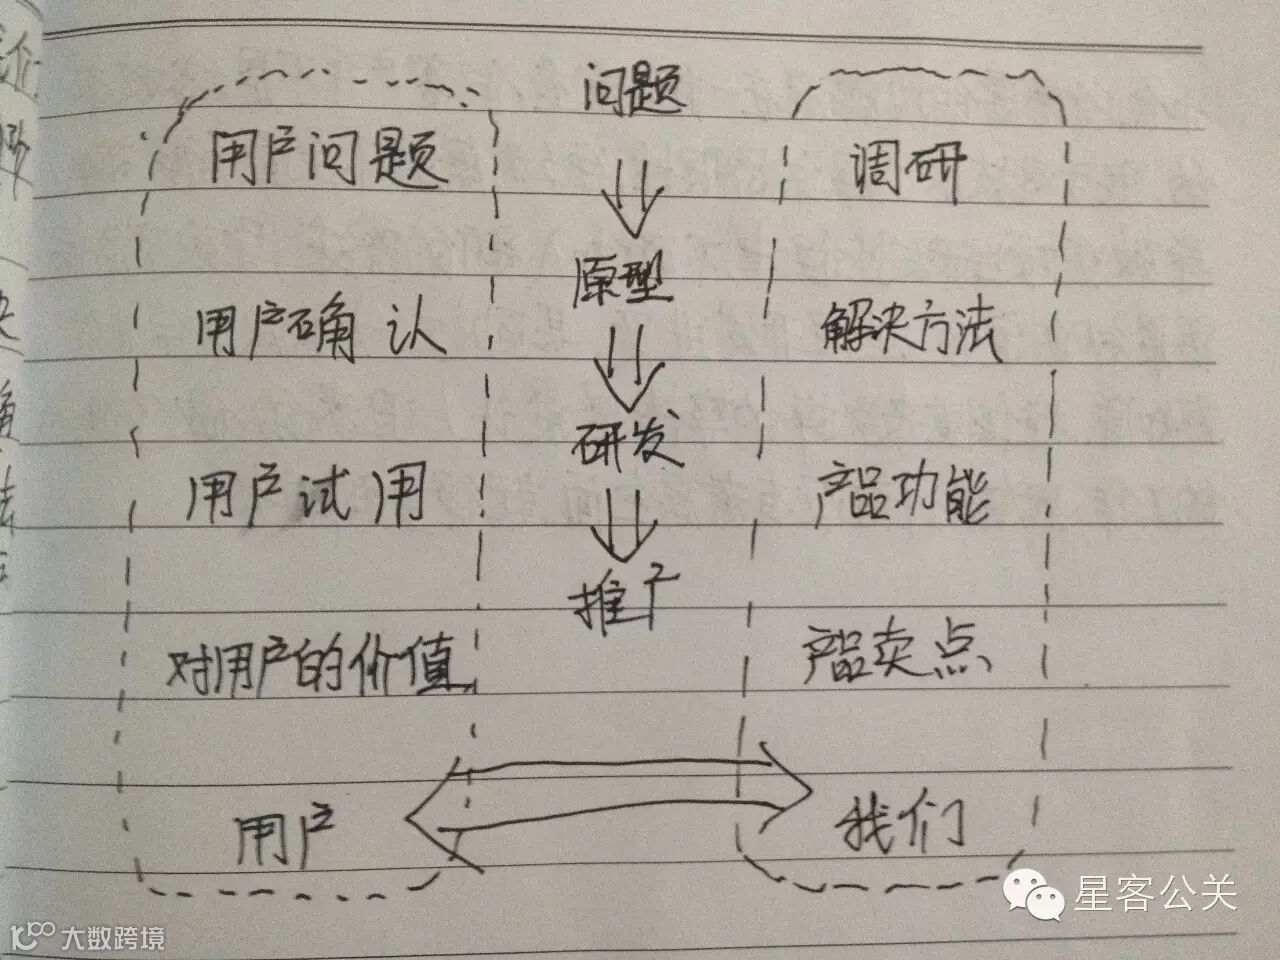 问题
用户问题
调研
原型
用户确认
解决方法
研发
用户试用
产品功能
推广
对用户的价值
产品卖点
用户
我们
星客公关
大数跨境